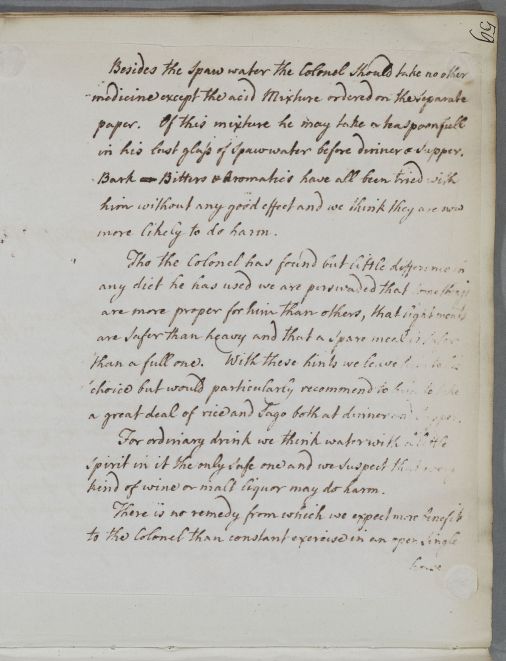 59
Besides the Spaw water the Colonel should take no other
medicine except the acid Mixture ordered on the separate
paper. Of this mixture he may take a teaspoonfull
in his last glass of Spaw water before dinner & supper.
Bark Bitters & Aromatics have all been tried with
him without any good effect and we think they are now
more likely to do harm.
Tho the Colonel has found but little difference in
any diet he has used we are perswaded that some things
are more proper for him than others, that light meats
are safer than heavy and that a spare meal is safer
than a full one. With these hints we leave
choice but would particularly recommend to him to take
a great deal of rice and Sago both at dinner and supper.
For ordinary drink we think water with a little
Spirit in it the only safe one and we suspect that every
kind of wine or malt liquor may do harm.
There is no remedy from which we expect more benefit
to the Colonel than constant exercise in an open single
horse